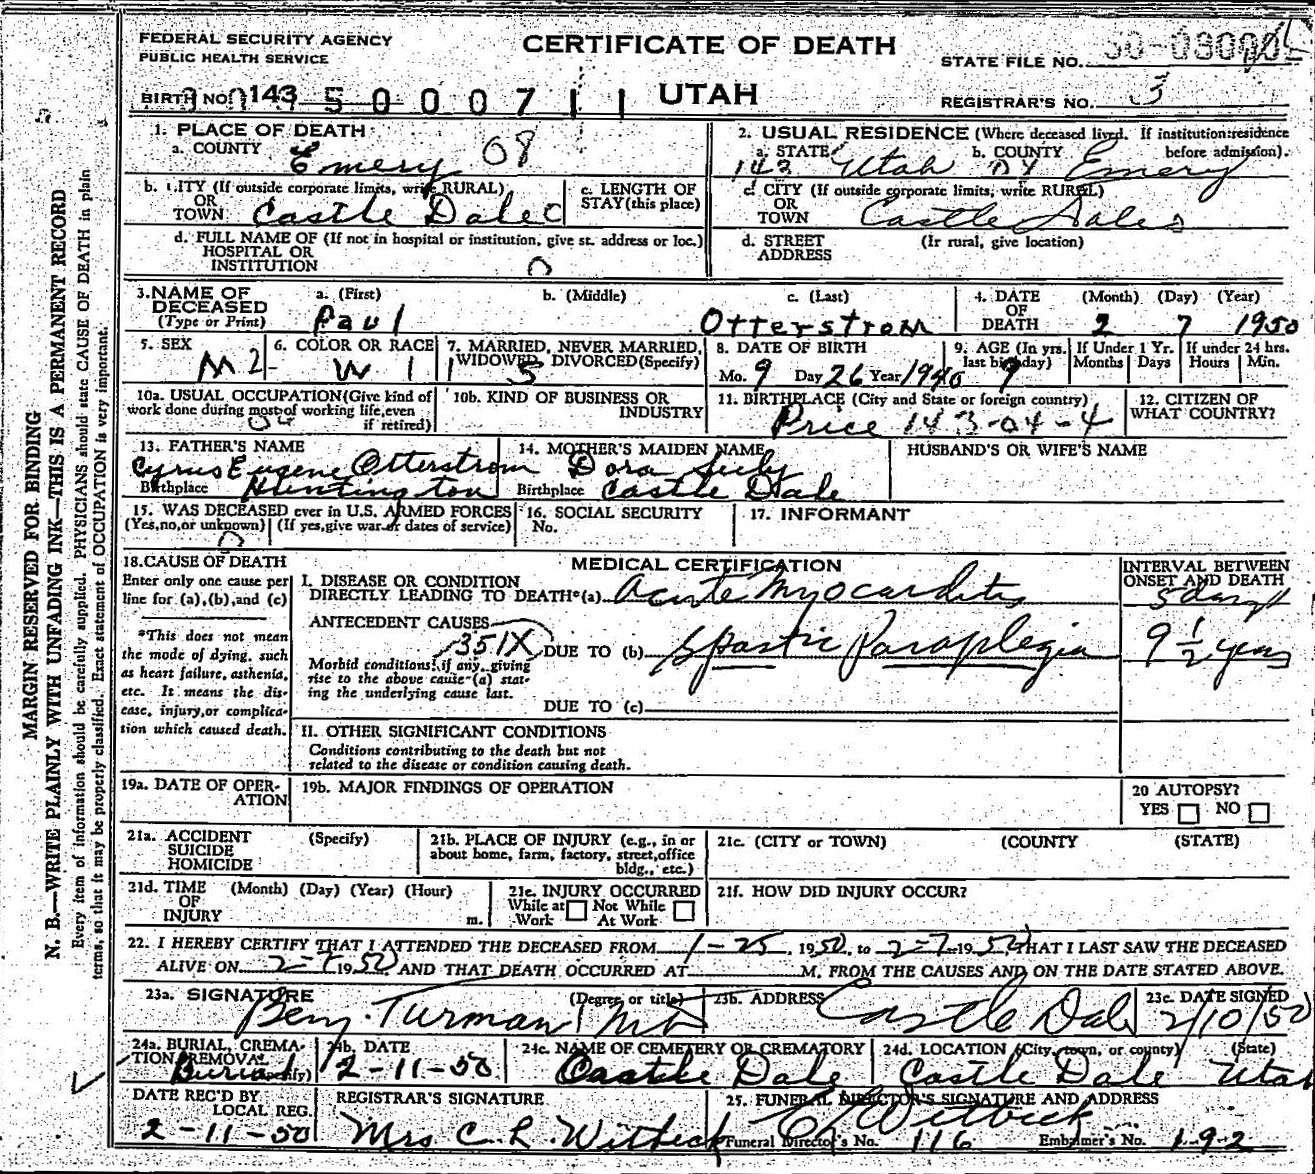 FEDERAL SECURITY AGENCY
PUBLIC HEALTH SERVICE
CERTIFICATE OF DEATH
STATE FILE NO.
BIRTH NO. 143 5000711
UTAH
REGISTRAR'S NO. 3
1. PLACE OF DEATH
a. COUNTY Emery 08
2. USUAL RESIDENCE (Where deceased lived. If institution: residence before admission).
a. STATE Utah b. COUNTY Emery
142
b. CITY (If outside corporate limits, write RURAL)
OR
TOWN Castle Dale
c. LENGTH OF
STAY (this place)
c. CITY (If outside corporate limits, write RURAL)
OR
TOWN Castle Dale
d. FULL NAME OF (If not in hospital or institution, give st. address or loc.)
HOSPITAL OR
INSTITUTION
d. STREET (If rural, give location)
ADDRESS
3. NAME OF DECEASED
(Type or Print)
a. (First) b. (Middle) c. (Last)
Paul Otterstrom
4. DATE OF DEATH (Month) (Day) (Year)
2 7 1950
5. SEX
M 2
6. COLOR OR RACE
W 1
7. MARRIED, NEVER MARRIED,
WIDOWED, DIVORCED (Specify)
1 S
8. DATE OF BIRTH
Mo. 9 Day 26 Year 1940
9. AGE (In yrs. last birthday) 9
If Under 1 Yr.
Months Days
If under 24 hrs.
Hours Min.
10a. USUAL OCCUPATION (Give kind of
work done during most of working life, even
if retired)
10b. KIND OF BUSINESS OR
INDUSTRY
11. BIRTHPLACE (City and State or foreign country)
Price 143-04-4
12. CITIZEN OF
WHAT COUNTRY?
13. FATHER'S NAME
Cyrus Eugene Otterstrom
Birthplace Huntington
14. MOTHER'S MAIDEN NAME
Dora Seely
Birthplace Castle Dale
HUSBAND'S OR WIFE'S NAME
15. WAS DECEASED ever in U.S. ARMED FORCES
(Yes, no, or unknown) (If yes, give war or dates of service)
16. SOCIAL SECURITY
No.
17. INFORMANT
18. CAUSE OF DEATH
Enter only one cause per
line for (a), (b), and (c)
*This does not mean
the mode of dying, such
as heart failure, asthenia,
etc. It means the dis-
ease, injury, or complica-
tion which caused death.
MEDICAL CERTIFICATION
INTERVAL BETWEEN
ONSET AND DEATH
I. DISEASE OR CONDITION
DIRECTLY LEADING TO DEATH*(a) Acute Myocarditis 5 days
ANTECEDENT CAUSES
351X DUE TO (b) Spastic Paraplegia 9 1/2 years
Morbid conditions, if any, giving
rise to the above cause (a) stat-
ing the underlying cause last.
DUE TO (c)
II. OTHER SIGNIFICANT CONDITIONS
Conditions contributing to the death but not
related to the disease or condition causing death.
19a. DATE OF OPER-
ATION
19b. MAJOR FINDINGS OF OPERATION
20 AUTOPSY?
YES NO
21a. ACCIDENT (Specify)
SUICIDE
HOMICIDE
21b. PLACE OF INJURY (e.g., in or
about home, farm, factory, street, office
bldg., etc.)
21c. (CITY or TOWN) (COUNTY) (STATE)
21d. TIME (Month) (Day) (Year) (Hour)
OF
INJURY m.
21e. INJURY OCCURRED
While at Work Not While At Work
21f. HOW DID INJURY OCCUR?
22. I HEREBY CERTIFY THAT I ATTENDED THE DECEASED FROM 1-25, 1950, to 2-7-1950, THAT I LAST SAW THE DECEASED
ALIVE ON 2-7 1950 AND THAT DEATH OCCURRED AT M. FROM THE CAUSES AND ON THE DATE STATED ABOVE.
23a. SIGNATURE (Degree or title)
Benj. Turman MD
23b. ADDRESS
Castle Dale
23c. DATE SIGNED
2/10/50
24a. BURIAL, CREMA-
TION, REMOVAL
Burial
24b. DATE
2-11-50
24c. NAME OF CEMETERY OR CREMATORY
Castle Dale
24d. LOCATION (City, town, or county) (State)
Castle Dale Utah
DATE REC'D BY
LOCAL REG.
2-11-50
REGISTRAR'S SIGNATURE
Mrs C. L. Witbeck
25. FUNERAL DIRECTOR'S SIGNATURE AND ADDRESS
Witbeck
Funeral Director's No. 116 Embalmer's No. 192
MARGIN RESERVED FOR BINDING
N. B.—WRITE PLAINLY WITH UNFADING INK—THIS IS A PERMANENT RECORD
Every item of information should be carefully supplied. PHYSICIANS should state CAUSE OF DEATH in plain
terms, so that it may be properly classified. Exact statement of OCCUPATION is very important.